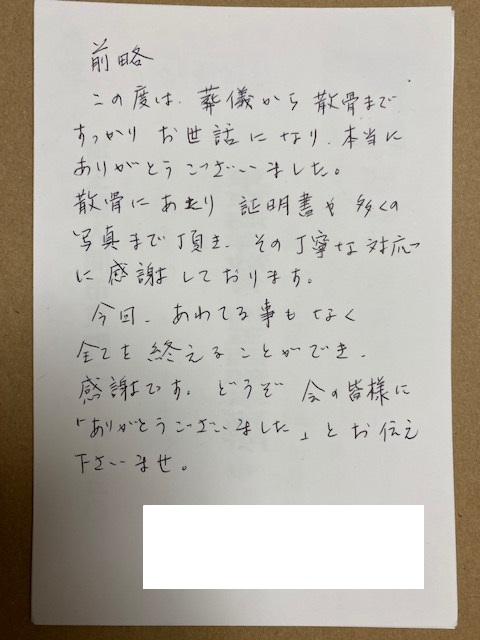 前略
この度は、葬儀から散骨まで
すっかりお世話になり、本当に
ありがとうございました。
散骨にあたり 証明書や多くの
写真まで頂き、その丁寧な対応
に感謝しております。
今回、あわてる事もなく
全てを終えることができ、
感謝です。どうぞ会の皆様に
「ありがとうございました」とお伝え
下さいませ。